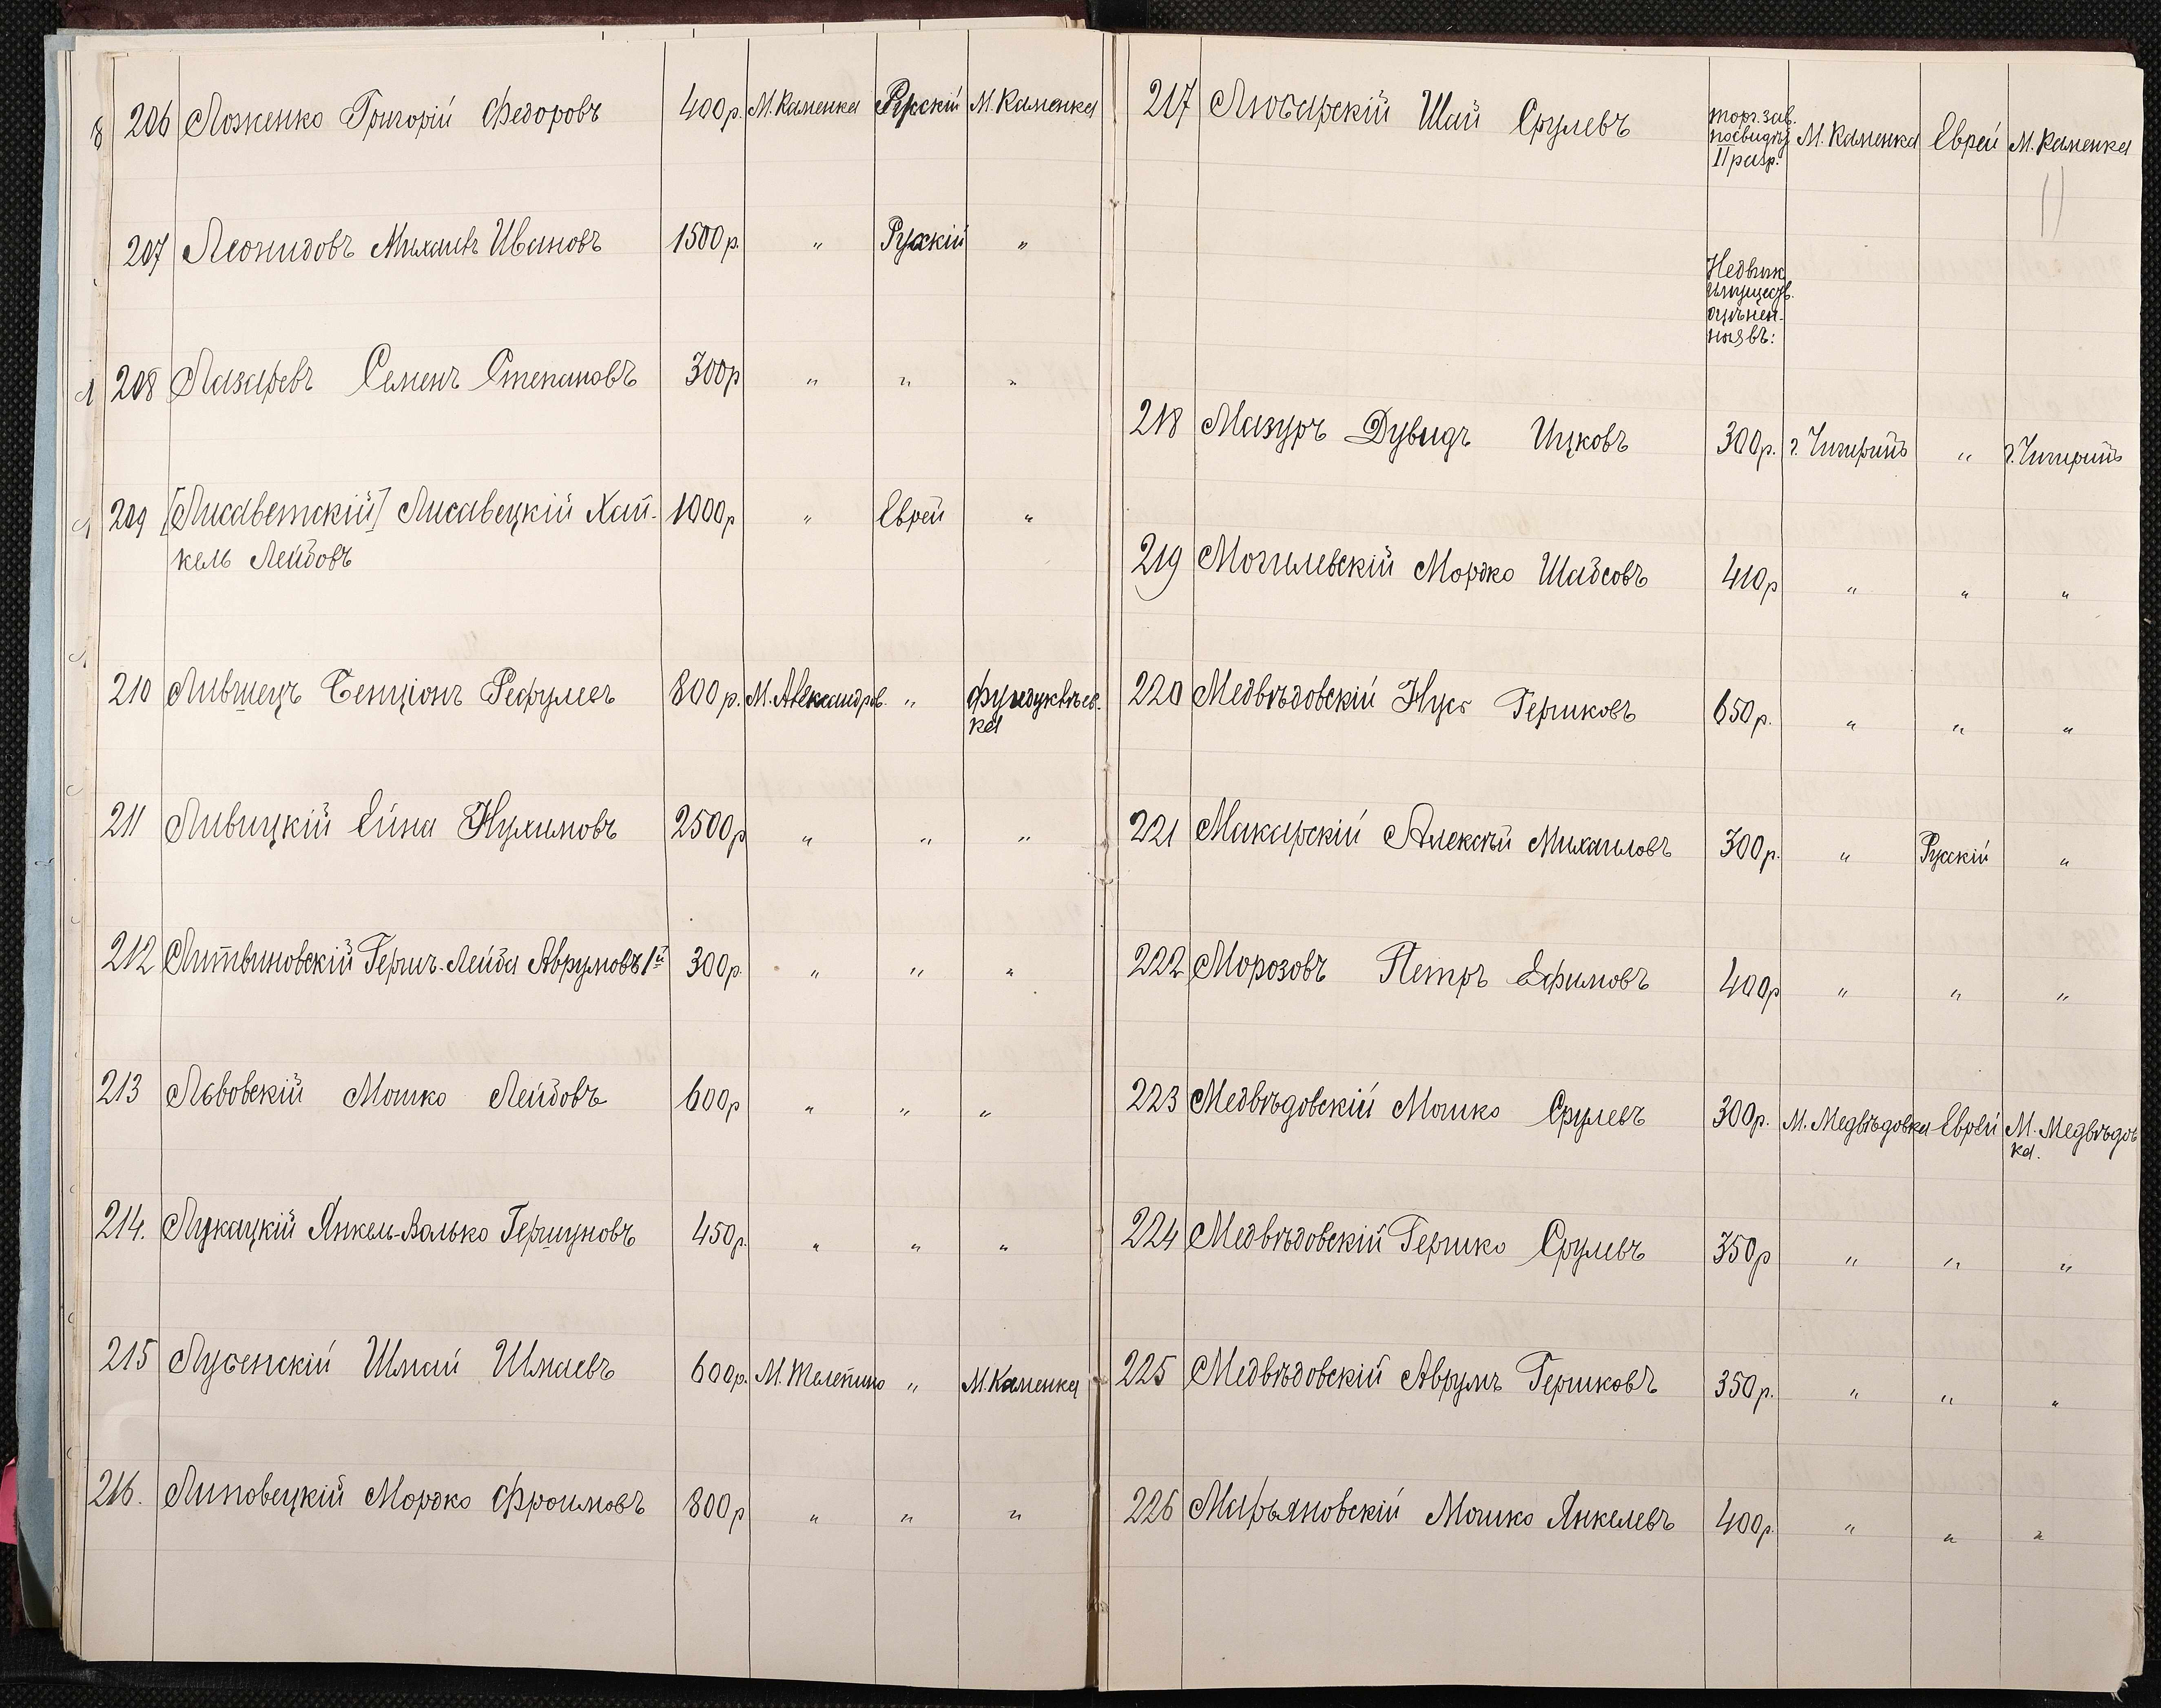 206 Ложенко Григорій Федоровъ 400р. М. Каменка Русскій М. Каменка
207 Леонидовъ Михаилъ Ивановъ 1500р. " Русскій "
208 Лазаревъ Семенъ Степановъ 300р " " "
209 [Лисаветскій] Лисавецкій Хай- 1000р " Еврей "
кель Лейбовъ
210 Лившецъ Бенціонъ Рефулевъ 800р. М. Александров. " Фундуклѣев-
ка
211 Ливицкій Ейна Нухимовъ 2500р " " "
212 Литвиновскій Гершъ-Лейба Аврумовъ 1й 300р. " " "
213 Львовскій Мошко Лейбовъ 600р " " "
214. Лукацкій Янкель-Волько Гершуновъ 450р. " " "
215 Лусенскій Шмай Шмаевъ 600р. М. Телепино " М. Каменка
216. Липовецкій Мордко Фроимовъ 800р " " "
217 Люсарскій Шай Срулевъ торг. зав.
по свидѣт. М. Каменка Еврей М. Каменка
II разр.
11
Недвиж.
имуществ.
оцѣнен-
ноя въ:
218 Мазуръ Дувидъ Ицковъ 300р. г. Чигиринъ " г. Чигиринъ
219 Могилевскій Мордко Шабсовъ 410р " " "
220 Медвѣдовскій Нусъ Гершковъ 650р. " " "
221 Макарскій Алексѣй Михаиловъ 300р. " Русскій "
222 Морозовъ Петръ Ефимовъ 400р " " "
223 Медвѣдовскій Мошко Срулевъ 300р. М. Медвѣдовка Еврей М. Медвѣдов
ка.
224 Медвѣдовскій Гершко Срулевъ 350р " " "
225 Медвѣдовскій Аврумъ Гершковъ 350р. " " "
226 Марьяновскій Мошко Янкелевъ 400р. " " "